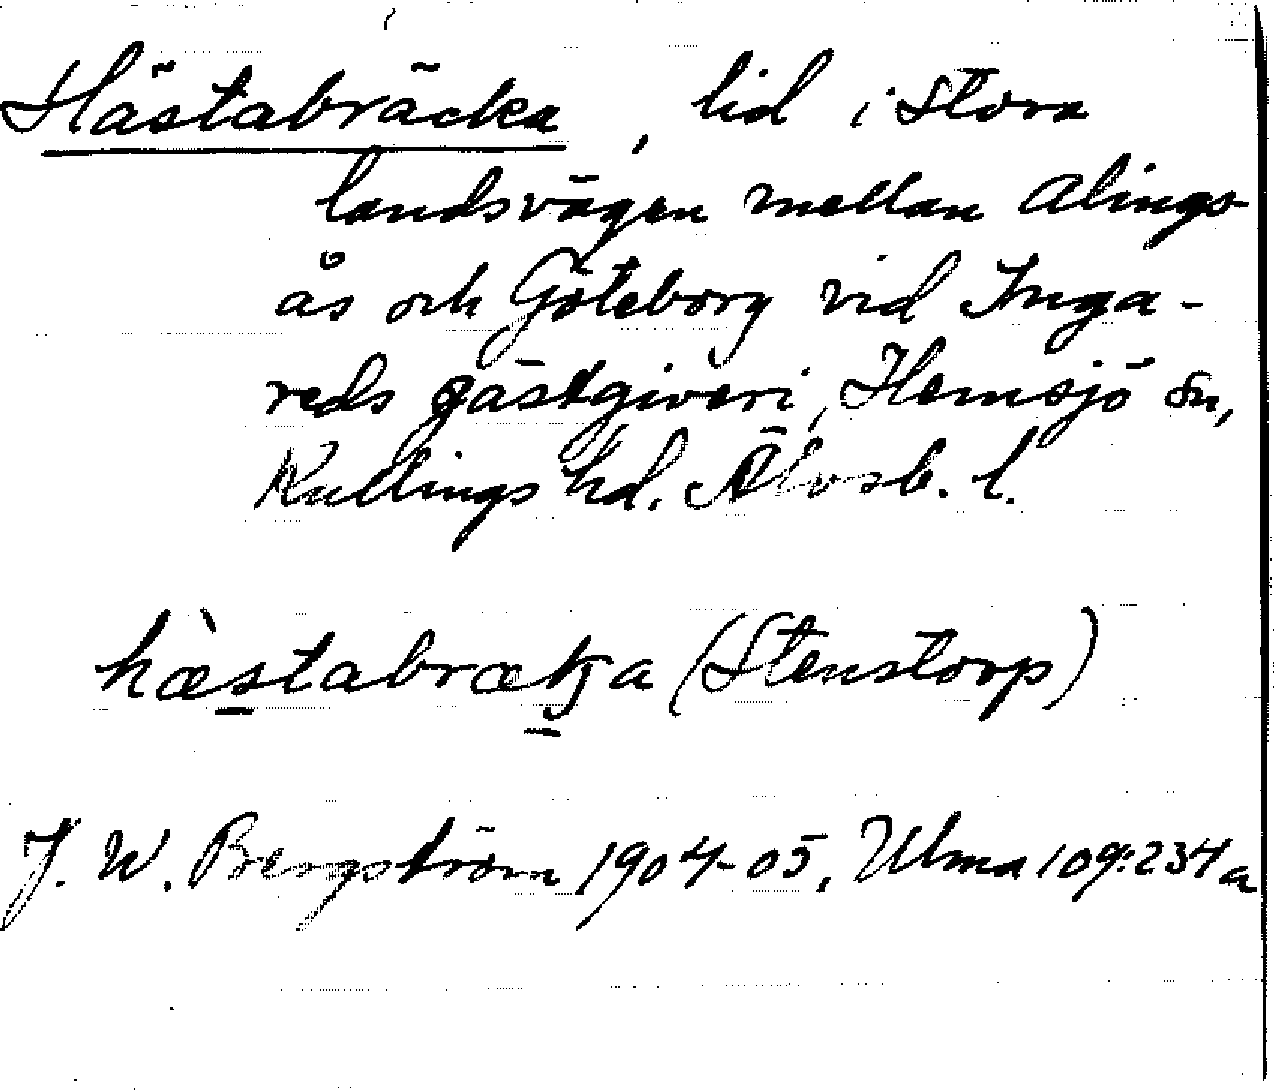 Hästabräcka, lid i Stora
landsvägen mellan Alings-
ås och Göteborg vid Inga-
reds gästgiveri, Hemsjö sn,
Kullings hd. Älvsb. l.
hæ̀stabræka (Stenstorp)
J. W. Bergström 1904-05, Ulma 109:234a